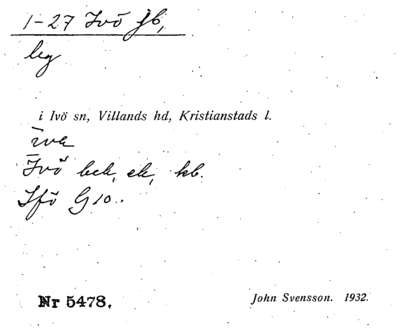 1-27 Ivö jb,
beg
i Ivö sn, Villands hd, Kristianstads l.
īvə
Ivö bek, ek, kb.
Ifö G 10.
Nr 5478.
John Svensson. 1932.